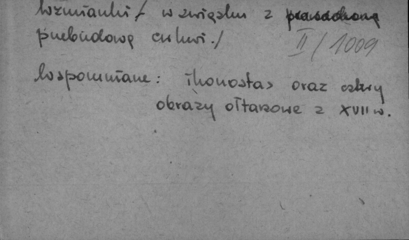 wzmianki / w związku z
przebudową cerkwi. /
II / 1009
Wspomniane: ikonostas oraz cztery
obrazy ołtarzowe z XVII w.